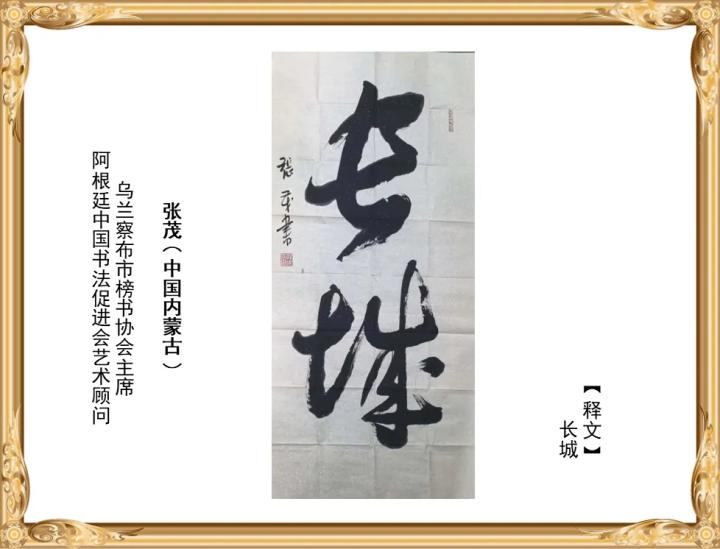 張茂書
長城
张茂（中国内蒙古）
乌兰察布市榜书协会主席
阿根廷中国书法促进会艺术顾问
【释文】
长城